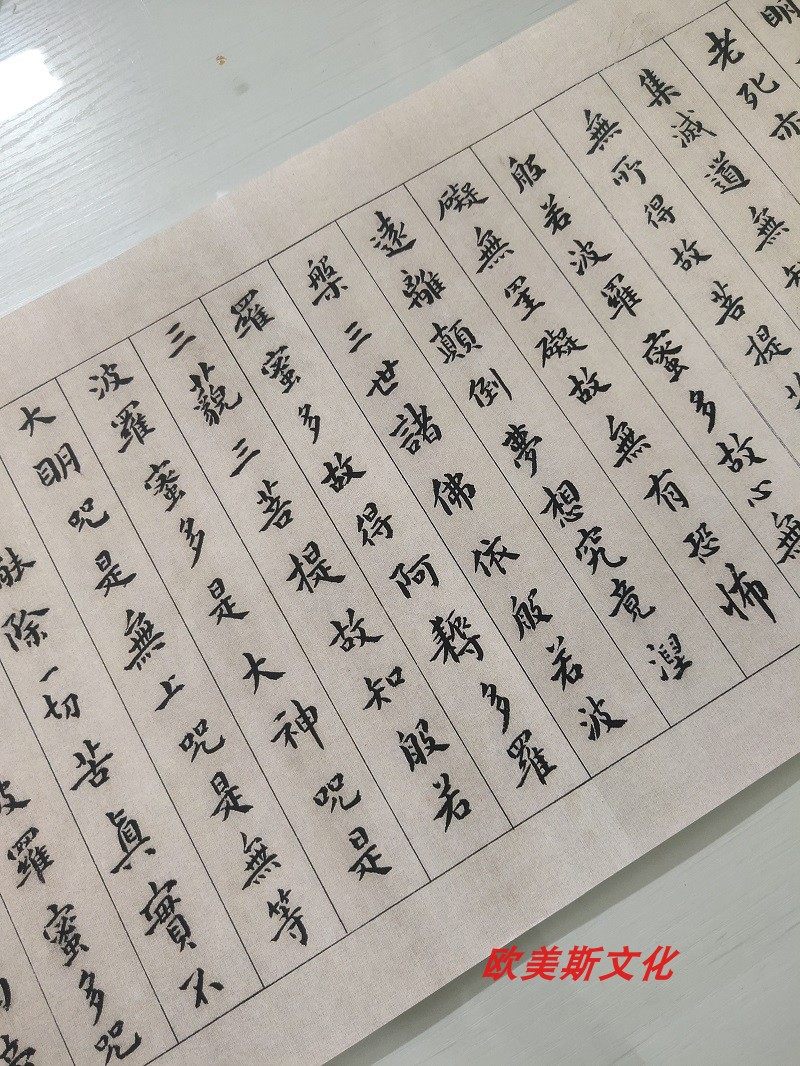 明
老死亦
集滅道無知
無所得故菩提
般若波羅蜜多故心無
礙無罣礙故無有恐怖
遠離顛倒夢想究竟涅
槃三世諸佛依般若波
羅蜜多故得阿耨多羅
三藐三菩提故知般若
波羅蜜多是大神咒是
大明咒是無上咒是無等
能除一切苦眞實不
波羅蜜多咒
欧美斯文化